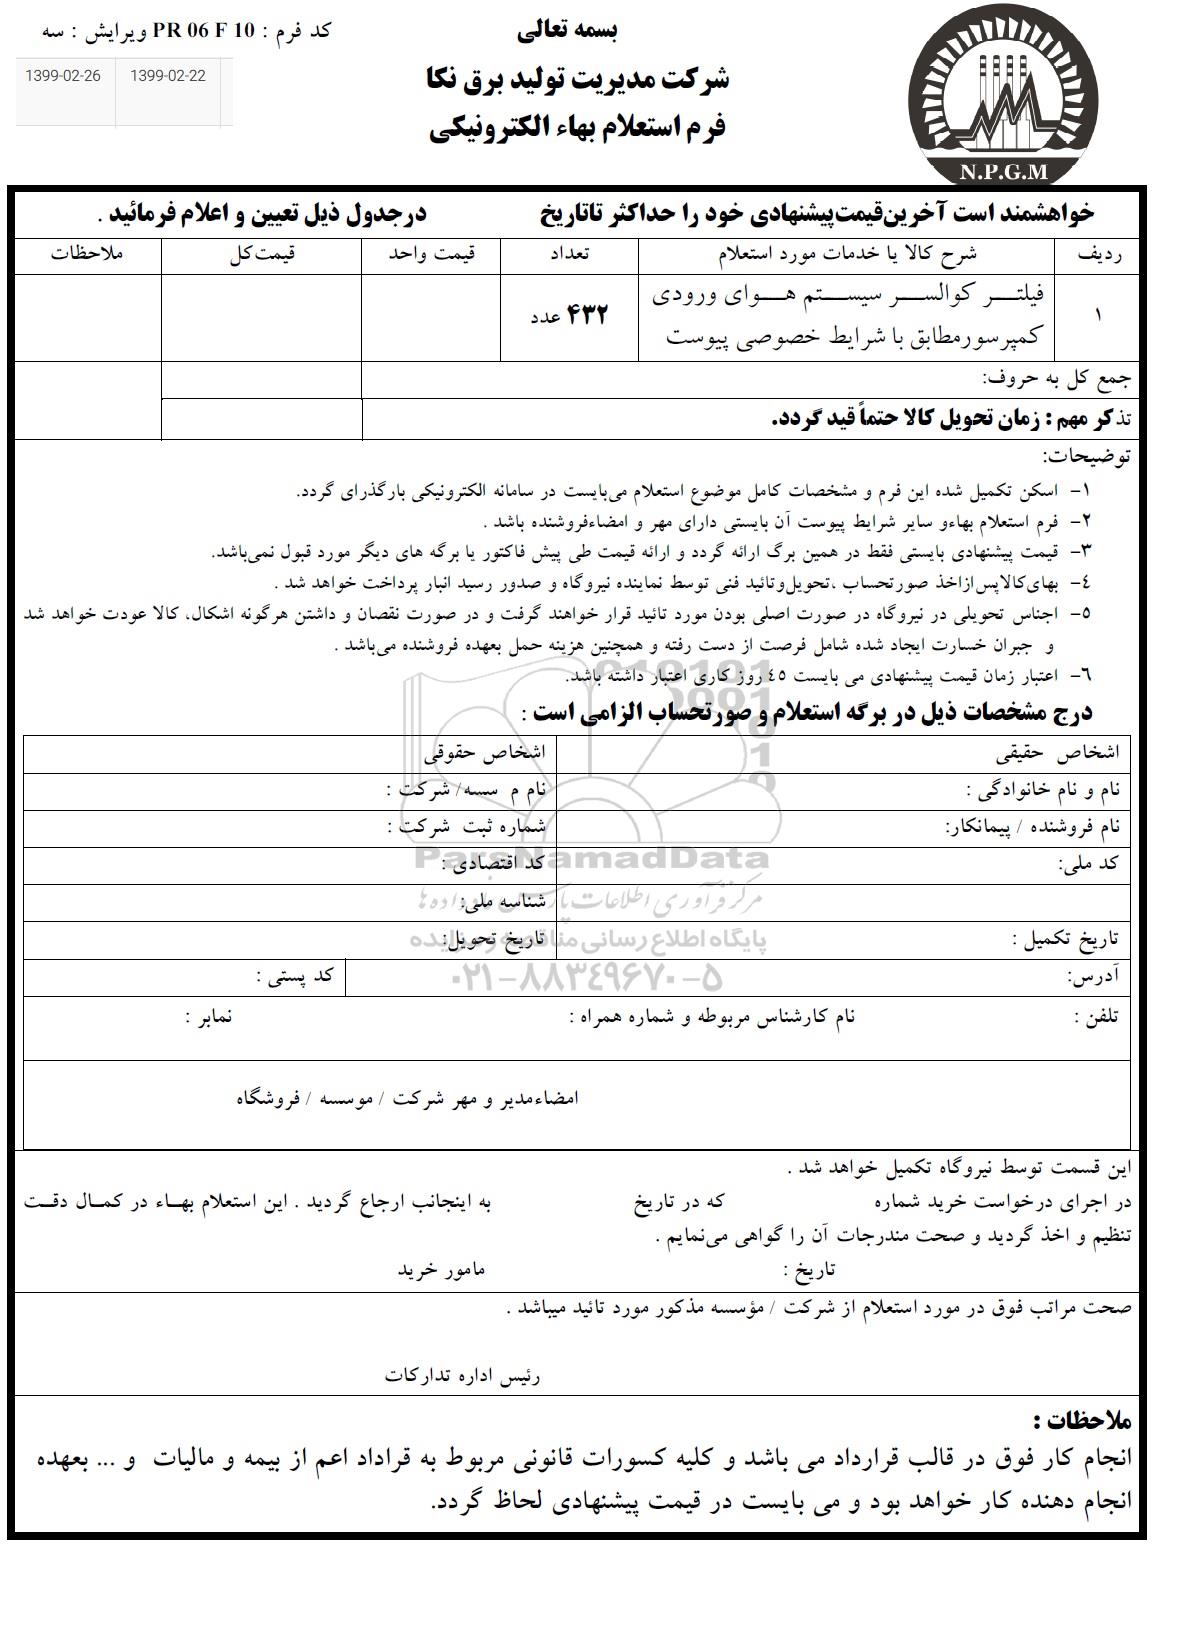 بسمه تعالی
کد فرم : PR 06 F 10 ویرایش : سه
شرکت مدیریت تولید برق نکا
1399-02-22 1399-02-26
فرم استعلام بهاء الکترونیکی
N.P.G.M
خواهشمند است آخرین‌قیمت‌پیشنهادی خود را حداکثر تاتاریخ درجدول ذیل تعیین و اعلام فرمائید .
ردیف شرح کالا یا خدمات مورد استعلام تعداد قیمت واحد قیمت‌کل ملاحظات
۱ فیلتر کوالسر سیستم هوای ورودی کمپرسورمطابق با شرایط خصوصی پیوست ۴۳۲ عدد
جمع کل به حروف:
تذکر مهم : زمان تحویل کالا حتماً قید گردد.
توضیحات:
۱- اسکن تکمیل شده این فرم و مشخصات کامل موضوع استعلام می‌بایست در سامانه الکترونیکی بارگذرای گردد.
۲- فرم استعلام بهاءو سایر شرایط پیوست آن بایستی دارای مهر و امضاءفروشنده باشد .
۳- قیمت پیشنهادی بایستی فقط در همین برگ ارائه گردد و ارائه قیمت طی پیش فاکتور یا برگه های دیگر مورد قبول نمی‌باشد.
٤- بهای‌کالاپس‌ازاخذ صورتحساب ،تحویل‌وتائید فنی توسط نماینده نیروگاه و صدور رسید انبار پرداخت خواهد شد .
٥- اجناس تحویلی در نیروگاه در صورت اصلی بودن مورد تائید قرار خواهند گرفت و در صورت نقصان و داشتن هرگونه اشکال، کالا عودت خواهد شد
و جبران خسارت ایجاد شده شامل فرصت از دست رفته و همچنین هزینه حمل بعهده فروشنده می‌باشد .
٦- اعتبار زمان قیمت پیشنهادی می بایست ٤٥ روز کاری اعتبار داشته باشد.
درج مشخصات ذیل در برگه استعلام و صورتحساب الزامی است :
اشخاص حقیقی اشخاص حقوقی
نام و نام خانوادگی : نام م سسه/ شرکت :
نام فروشنده / پیمانکار: شماره ثبت شرکت :
ParsNamadData
کد ملی: کد اقتصادی :
شناسه ملی:
تاریخ تکمیل : تاریخ تحویل:
پایگاه اطلاع رسانی مناقصه و مزایده
آدرس: کد پستی :
۰۲۱-۸۸۳۴۹۶۷۰-۵
تلفن : نام کارشناس مربوطه و شماره همراه : نمابر :
امضاءمدیر و مهر شرکت / موسسه / فروشگاه
این قسمت توسط نیروگاه تکمیل خواهد شد .
در اجرای درخواست خرید شماره که در تاریخ به اینجانب ارجاع گردید . این استعلام بهاء در کمال دقت
تنظیم و اخذ گردید و صحت مندرجات آن را گواهی می‌نمایم .
تاریخ : مامور خرید
صحت مراتب فوق در مورد استعلام از شرکت / مؤسسه مذکور مورد تائید میباشد .
رئیس اداره تدارکات
ملاحظات :
انجام کار فوق در قالب قرارداد می باشد و کلیه کسورات قانونی مربوط به قراداد اعم از بیمه و مالیات و ... بعهده
انجام دهنده کار خواهد بود و می بایست در قیمت پیشنهادی لحاظ گردد.